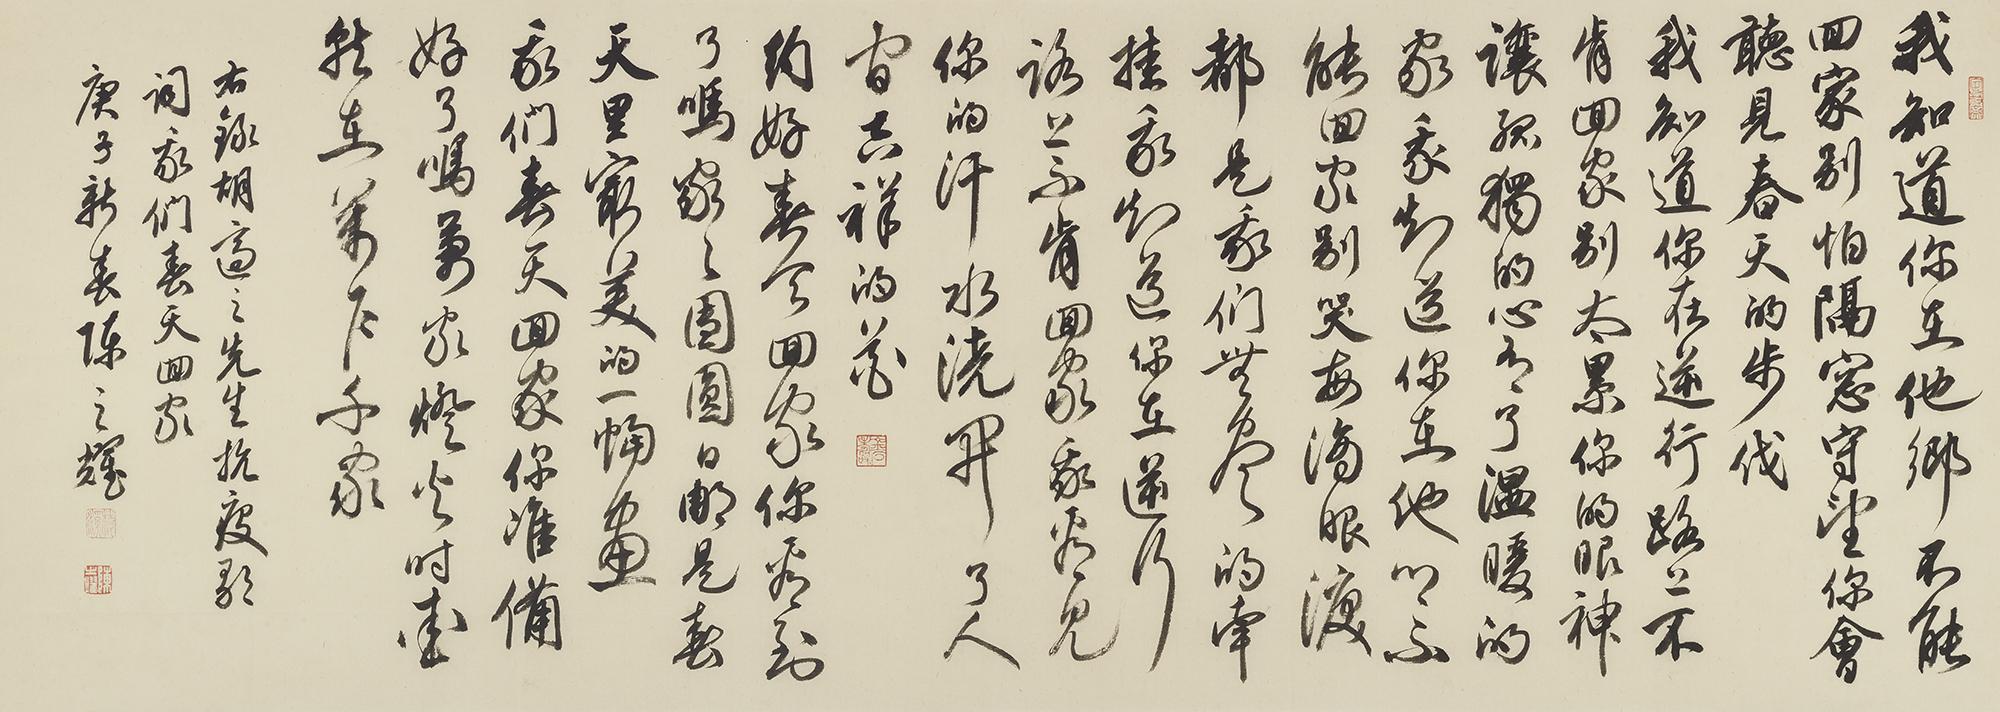 我知道你在他鄉不能
回家別怕隔窓守望你會
聽見春天的步伐
我知道你在逆行路上不
肯回家別太累你的眼神
讓孤獨的心有了溫暖的
家我知道你在他鄉不
能回家別哭每滴眼淚
都是我们無盡的牽
掛我知道你在逆行
路上不肯回家我看見
你的汗水澆開了人
間吉祥的花
約好春天回家你看到
了嗎家家團圓日哪是春
天里最美的一幅畫
我們春天回家你准備
好了嗎萬家燈火时愛
就在萬户千家
右錄胡適之先生抗疫歌
詞我們春天回家
庚子新春陳之耀